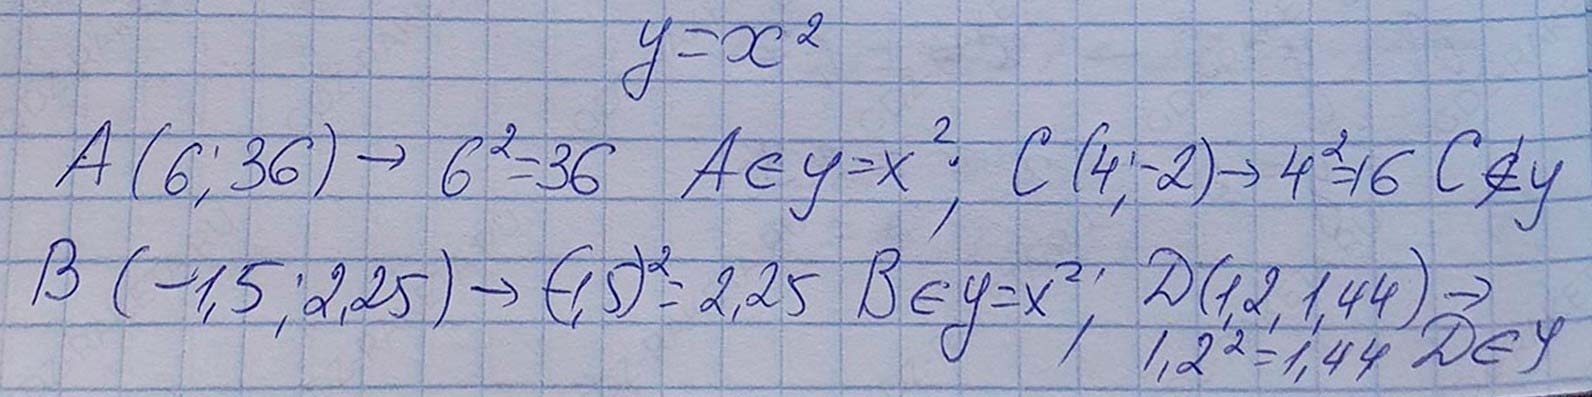 y=x²
A(6;36)→ 6²=36 A∈y=x²; C(4;-2)→4²=16 C∉y
B(-1,5;2,25)→(-1,5)²=2,25 B∈y=x²; D(1,2,1,44)→
1,2²=1,44 D∈y